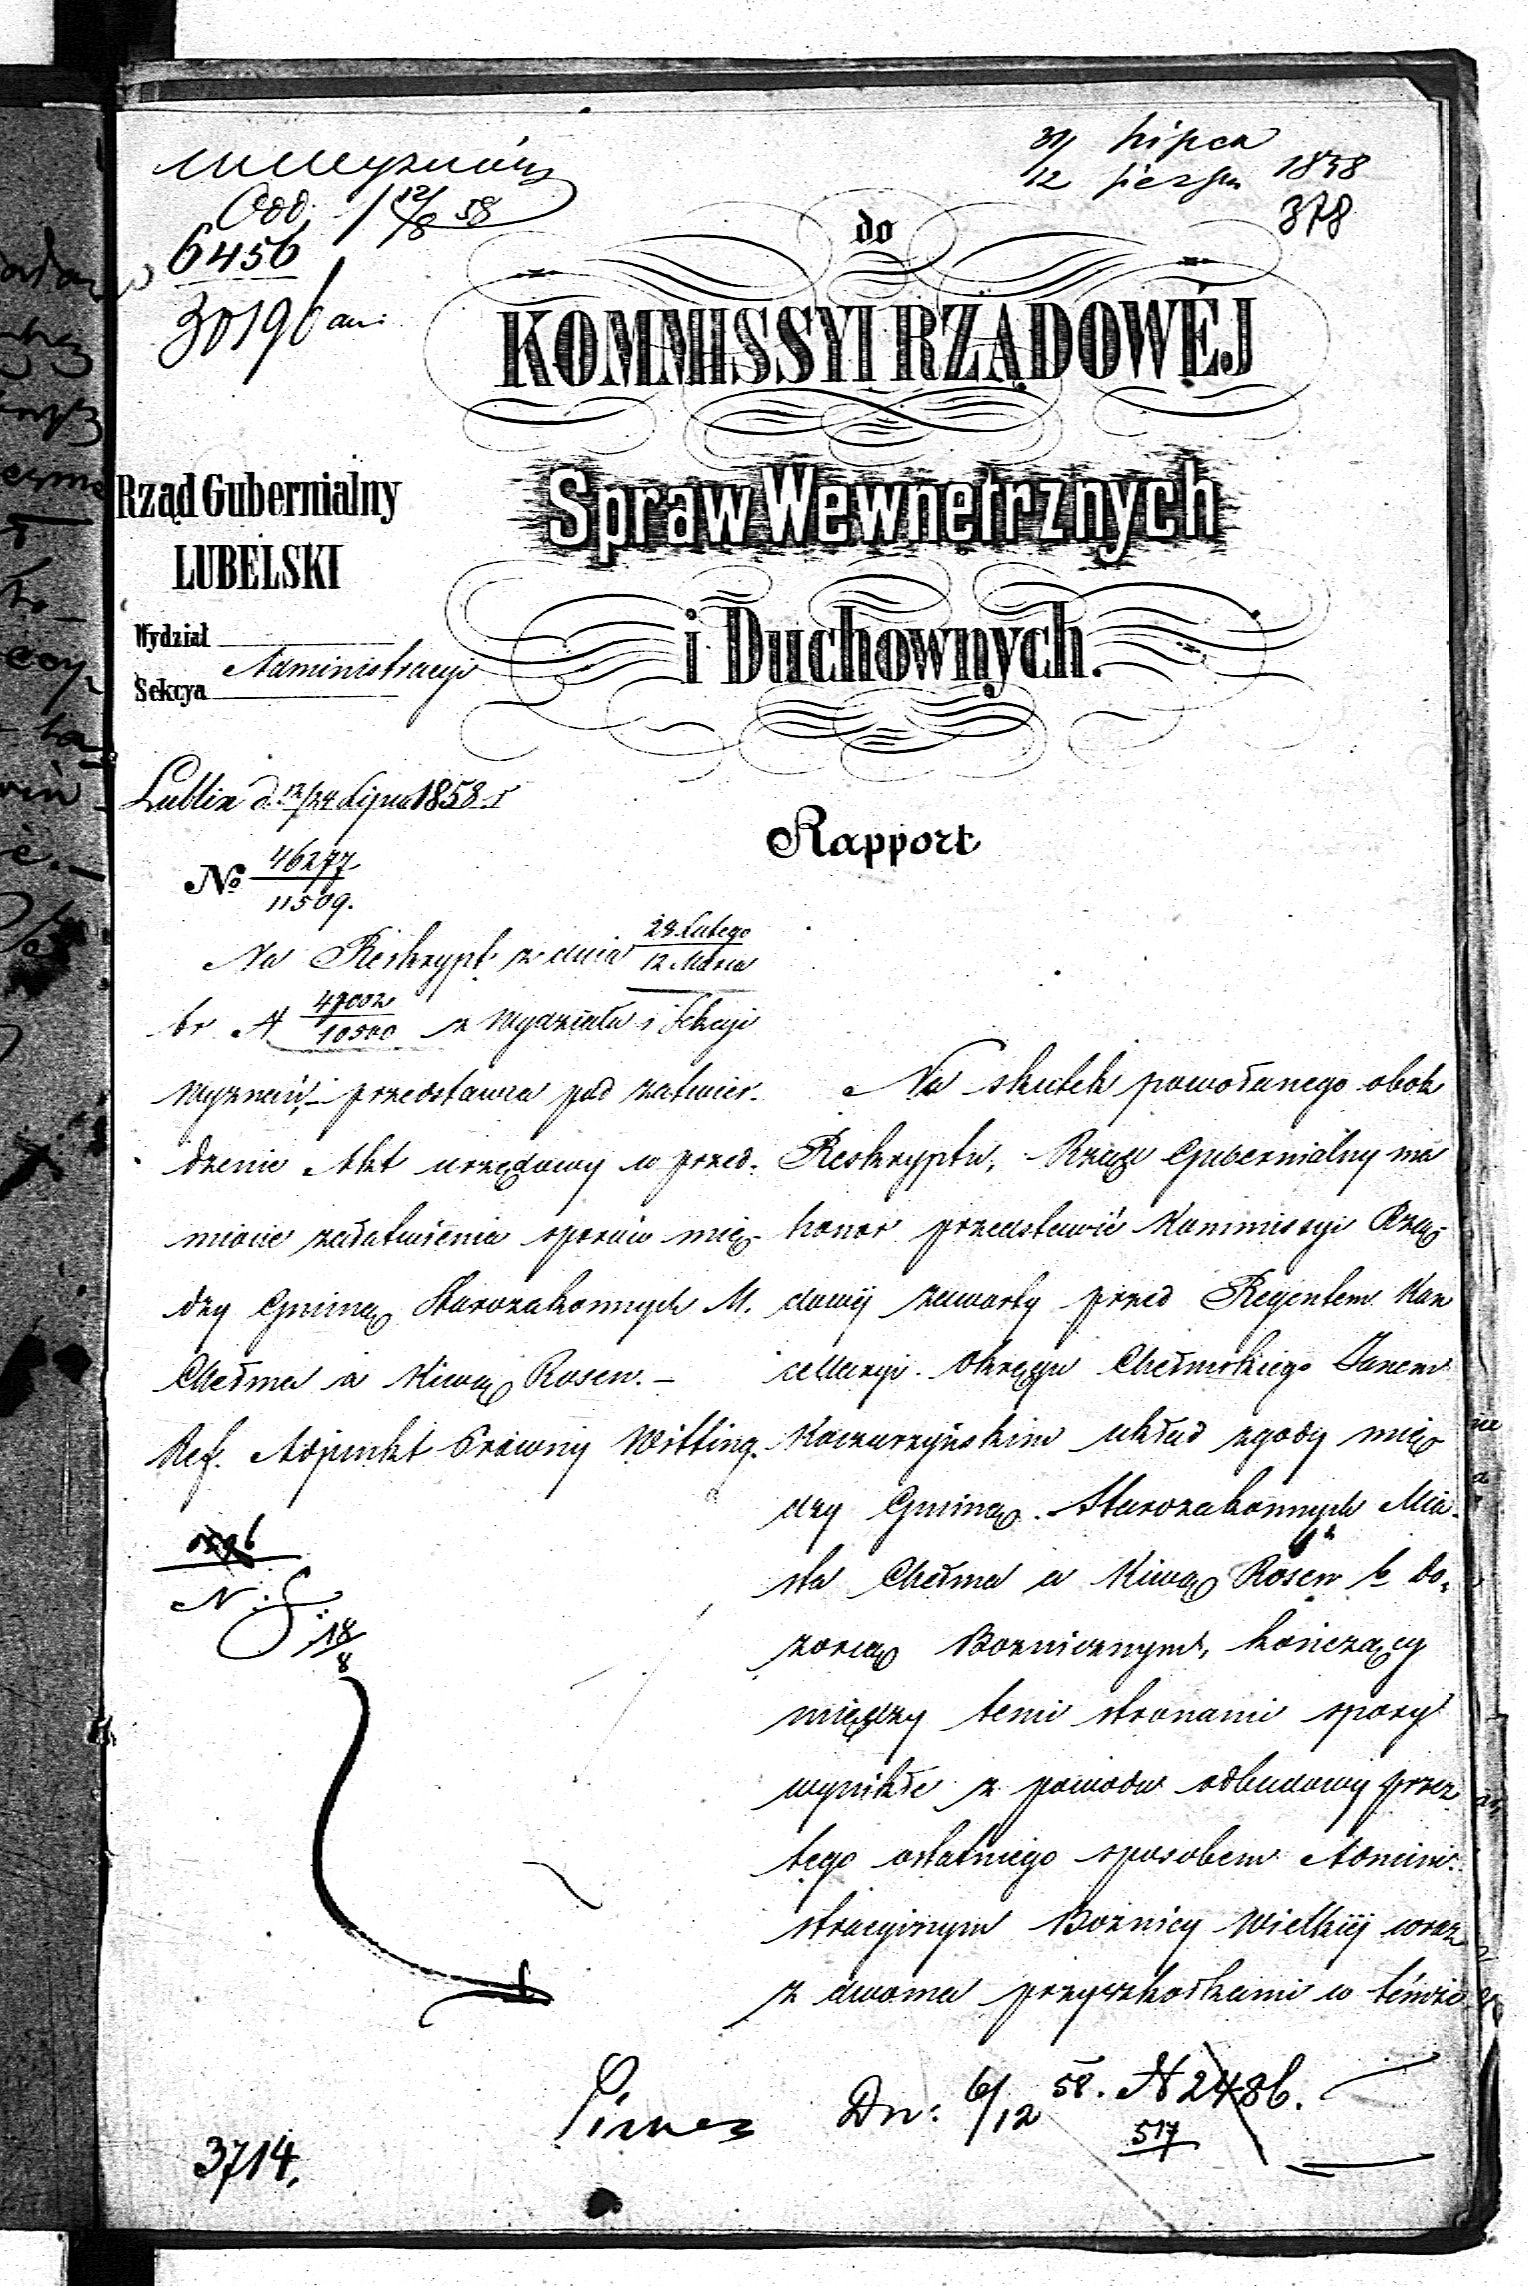 31/ Lipca
/12 Sierpn 1858
378
Odd. 12/8 58
6456
30196
do
KOMMISSYI RZĄDOWÉJ
Spraw Wewnetrznych
i Duchownych.
Rząd Gubernialny
LUBELSKI
Wydział
Administracyi
Sekcya
Lublin d. 12/24 Lipca 1858 r
Rapport
No 46277
11509.
Na Reskrypt z dnia 28 Lutego
12 Marca
br N 47002
10500 z Wydziału i Sekcyi
Wyznań, - przedstawia pod zatwier-
dzenie Akt urzędowy w przed-
miocie załatwienia sporów mię-
dzy Gminą Starozakonnych M.
Chełma a Kiwą Rosen. -
Ref. Adjunkt Prawny Witting.
Na skutek powołanego obok
Reskryptu, Rząd Gubernialny ma
honor przedstawić Kommissyi Rzą-
dowéj zawarty przed Regentem Kan
cellaryi Okręgu Chełmskiego Janem
Kaczurzyńskim układ zgody mię
dzy Gminą Starozakonnych Mia-
sta Chełma a Kiwą Rosen b. Do-
zorcą Bożnicznym, kończący
między temi stronami spory
wynikłe z powodu odbudowy przez
tego ostatniego sposobem Admini-
stracyjnym Bożnicy Wielkiéj wraz
z dwoma przyszkołkami w témże
18/8
Dn: 6/12 58. N 2486.
517
3714.